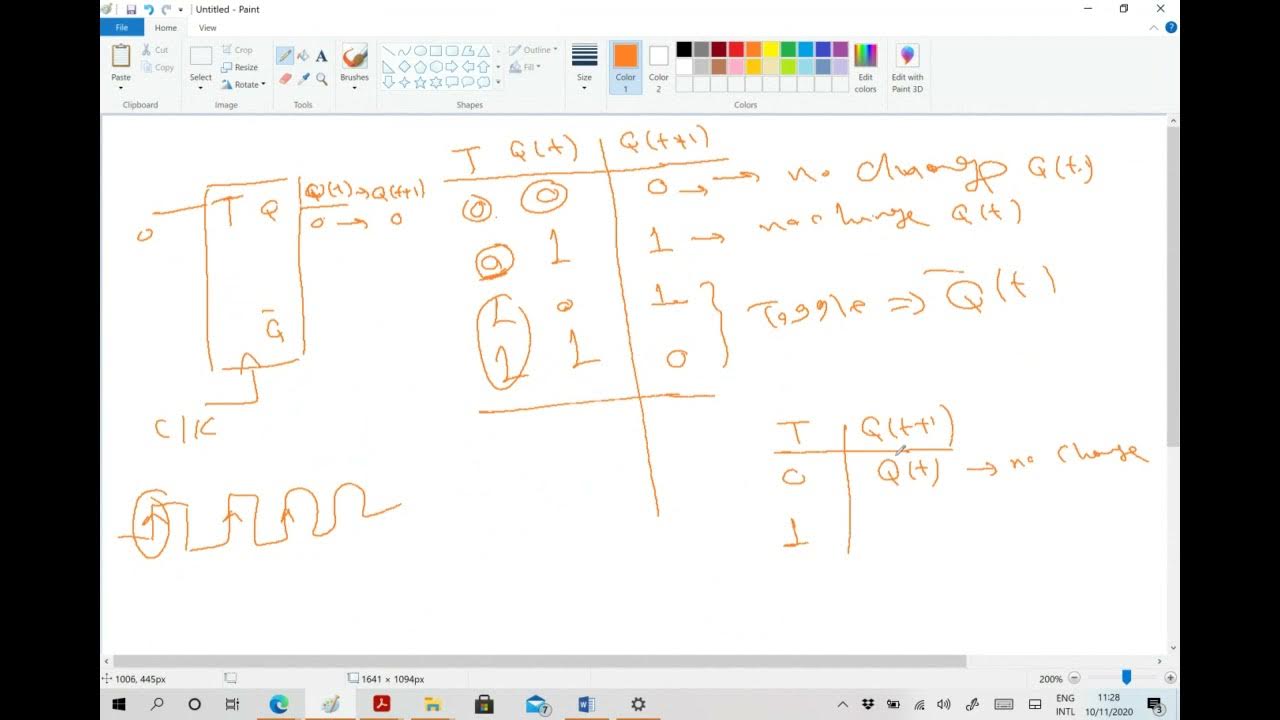 Untitled - Paint
File Home View
Paste Cut Copy Clipboard
Select Crop Resize Rotate Image
Tools
Brushes
Shapes Outline Fill
Size
Color 1
Color 2
Edit colors
Colors
Edit with Paint 3D
T Q(t) Q(t+1)
0 0 0 → → no change Q(t)
0 1 1 → no change Q(t)
1 0 1
1 1 0
Toggle ⇒ Q̅(t)
0 T Q Q(t)→Q(t+1)
0 → 0
Q̅
C/K
T Q(t+1)
0 Q(t) → no change
1
1006, 445px
1641 × 1094px
200%
7
ENG
INTL
11:28
10/11/2020
3